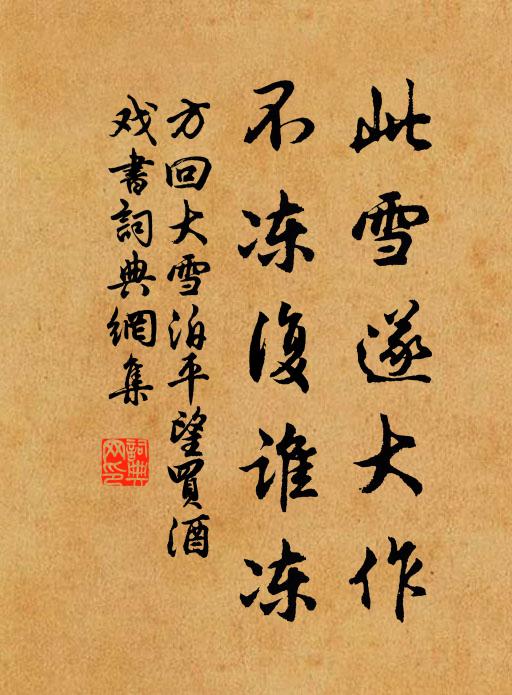 此雪遂大作
不冻復谁冻
方回大雪泊平望買酒
戏書詞典網集
詞典
网印